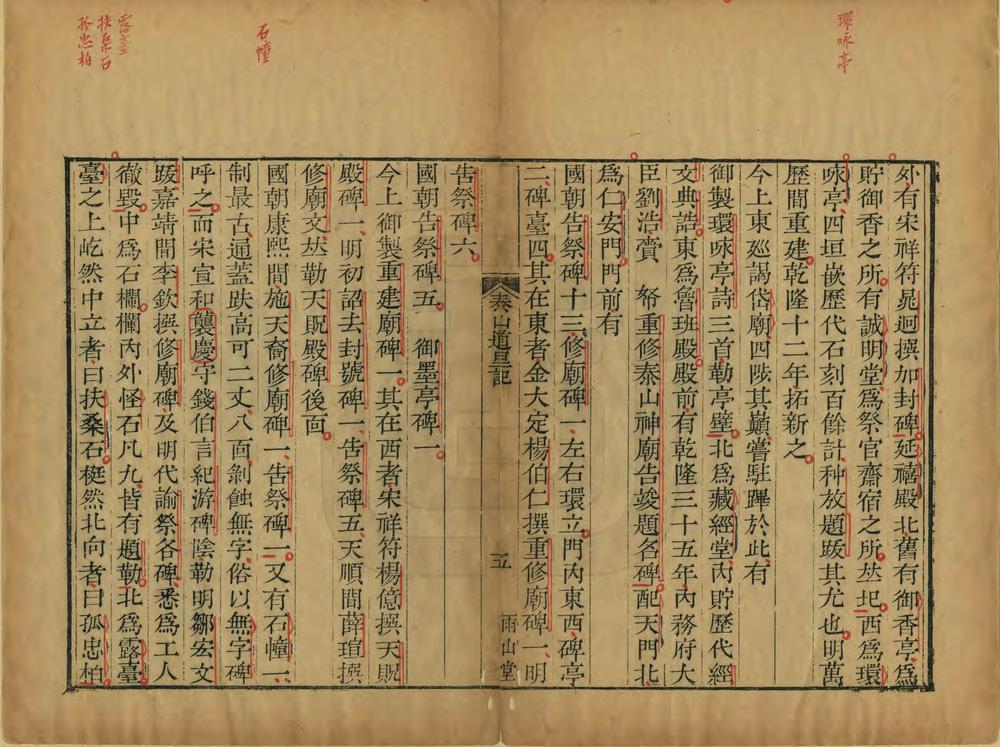 環咏亭
外有宋祥符晁迥撰加封碑延禧殿北舊有御香亭爲
貯御香之所有誠明堂爲祭官齋宿之所𠀤圯西爲環
咏亭四垣嵌歷代石刻百餘計种放題跋其尤也明萬
歷間重建乾隆十二年拓新之
今上東廵謁岱廟四陟其巔嘗駐蹕於此有
御製環咏亭詩三首勒亭壁北爲藏經堂內貯歷代經
文典誥東爲魯班殿殿前有乾隆三十五年內務府大
臣劉浩賫帑重修泰山神廟告竣題名碑配天門北
爲仁安門門前有
國朝告祭碑十三修廟碑一左右環立門內東西碑亭
二碑臺四其在東者金大定楊伯仁撰重修廟碑一明
告祭碑六
泰山道里記
五
雨山堂
國朝告祭碑五 御墨亭碑一
今上御製重建廟碑一其在西者宋祥符楊億撰天貺
殿碑一明初詔去封號碑一告祭碑五天順間薛瑄撰
修廟文𠀤勒天貺殿碑後面
國朝康熙間施天裔修廟碑一告祭碑二又有石幢一
制最古通蓋趺高可二丈八面剝蝕無字俗以無字碑
呼之而宋宣和襲慶守錢伯言紀游碑陰勒明鄒宏文
跋嘉靖間李欽撰修廟碑及明代諭祭各碑悉爲工人
徹毀中爲石欄欄內外怪石凡九皆有題勒北爲露臺
臺之上屹然中立者曰扶桑石㮰然北向者曰孤忠柏
石幢
露臺
扶桑石
孤忠柏